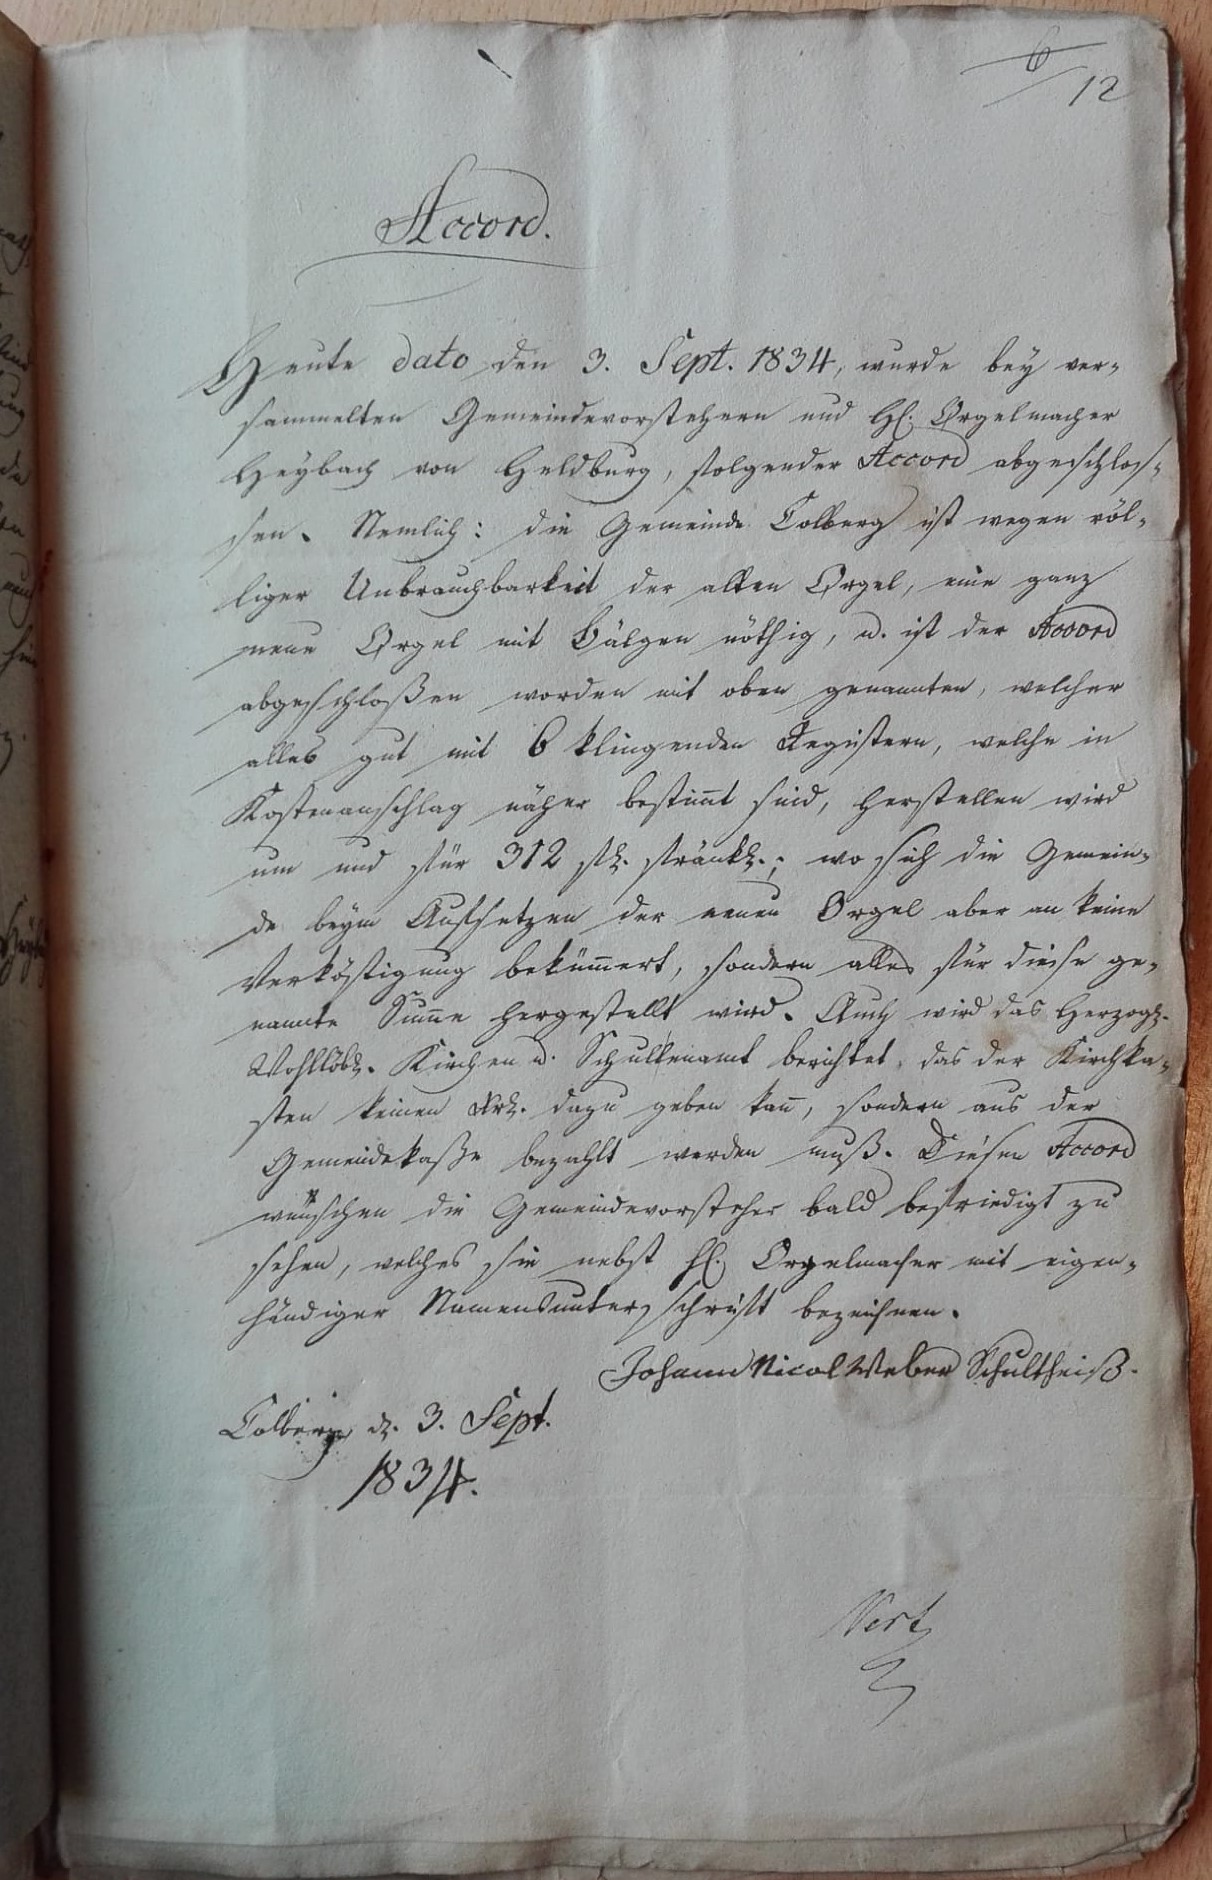 6
12
Accord.
Heute dato den 3. Sept. 1834, wurde bey ver-
sammelten Gemeindevorstehern und H. Orgelmacher
Heybach von Heldburg, folgender Accord abgeschlos-
sen. Nemlich: die Gemeinde Colberg ist wegen völ-
liger Unbrauchbarkeit der alten Orgel, eine ganz
neue Orgel mit Bälgen nöthig, u. ist der Accord
abgeschloßen worden mit oben genannten, welcher
alles gut mit 6 klingenden Registern, welche in
Kostenanschlag näher bestim̄t sind, herstellen wird
um und für 312 fl. fränkl.; wo sich die Gemein-
de beym Aufsetzen der neuen Orgel aber an keine
Verköstigung beküm̄ert, sondern alles für diese ge-
nannte Sum̄e hergestellt wird. Auch wird das Herzogl.
Wohllöbl. Kirchen u. Schulkenamt berichtet, das der Kirchka-
sten keinen dazu geben kan̄, sondern aus der
Gemeindekaße bezahlt werden muß. Diesen Accord
wünschen die Gemeindevorsteher bald befriedigt zu
sehen, welches sie nebst H. Orgelmacher mit eigen-
händiger Namensunterschrift bezeichnen.
Johann Nicol Weber Schultheiß.
Colberg d. 3. Sept.
1834.